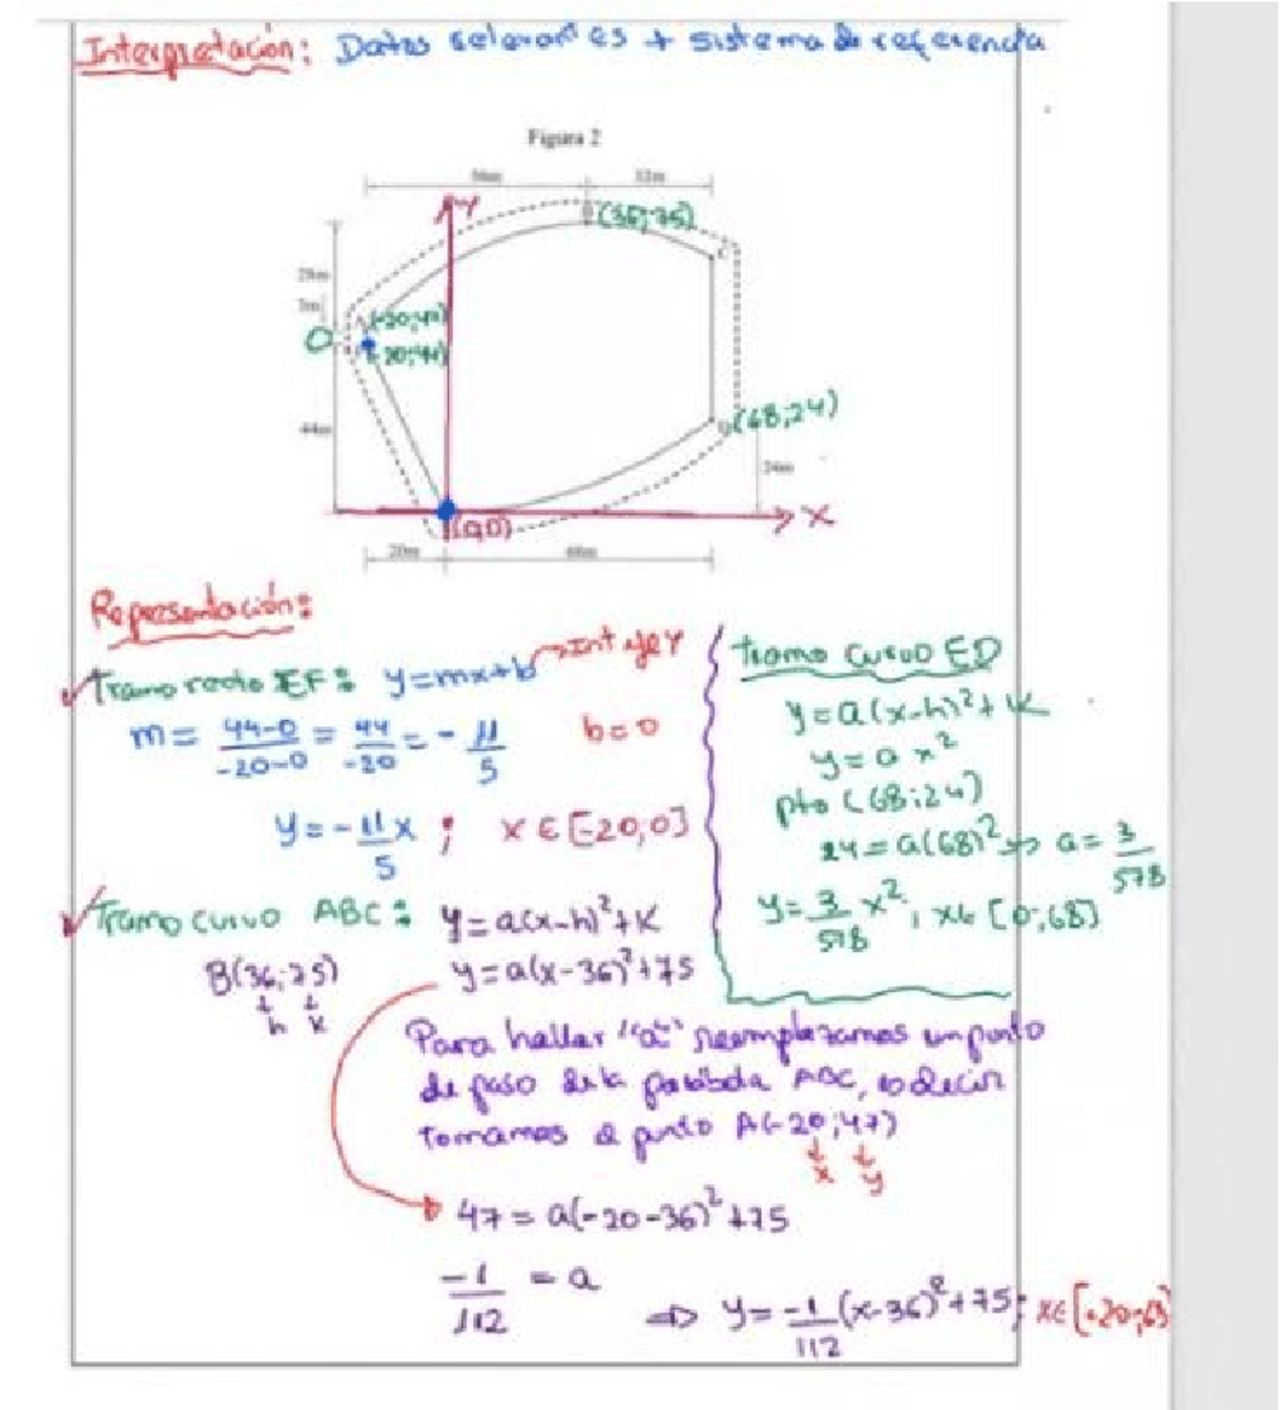 Interpretación: Datos relevantes + sistema de referencia
Figura 2
56m 32m
Y
B (36;75)
C
28m
3m
A(-20;47)
O
F(-20;44)
D(68;24)
44m
24m
(0,0)
X
20m 68m
Representación:
Tramo recto EF: y=mx+b → Int eje Y
m = 44-0 / -20-0 = 44 / -20 = - 11 / 5 b=0
y = - 11/5 x ; x ∈ [-20;0]
Tramo curvo ED
y = a(x-h)²+k
y = a x²
pto (68;24)
24 = a(68)² => a = 3/578
y = 3/578 x² ; x ∈ [0;68]
Tramo curvo ABC: y = a(x-h)²+k
B(36;75) y = a(x-36)²+75
h k
Para hallar "a" reemplazamos un punto
de paso de la parábola ABC, es decir
tomamos el punto A(-20;47)
x y
47 = a(-20-36)²+75
-1/112 = a
⇒ y = -1/112 (x-36)²+75; x∈[-20;63